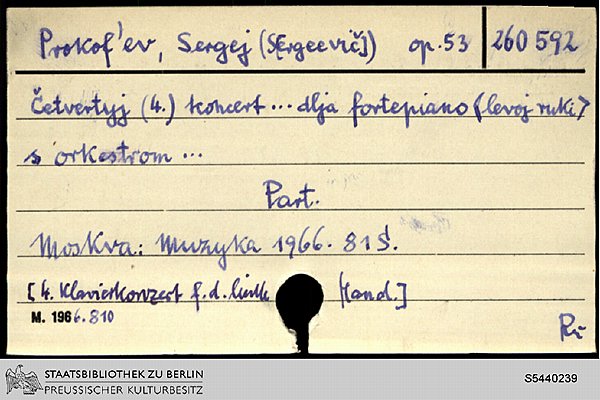 Prokof'ev, Sergej (S[ergeevič]) op. 53 260 592
Četvertyj (4.) koncert ... dlja fortepiano (levoj ruki)
s orkestrom ...
Part.
Moskva: Muzyka 1966. 81 S.
[4. Klavierkonzert f. d. linke Hand.]
M. 1966.810
STAATSBIBLIOTHEK ZU BERLIN
PREUSSISCHER KULTURBESITZ
S5440239